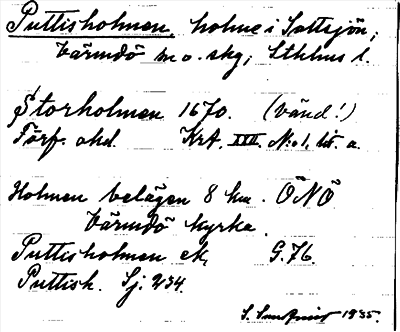 Puttisholmen, holme i Saltsjön,
Värmdö sn o. skg; Sthlms l.
Storholmen 1670. (vänd!)
Förf. okd. Krt. XVII. N:o 1. litt. a.
Holmen belägen 8 km. ÖNÖ
Värmdö kyrka.
Puttisholmen ek. G. 76.
Puttish. Sj. 234.
S. Sundqvist 1935.